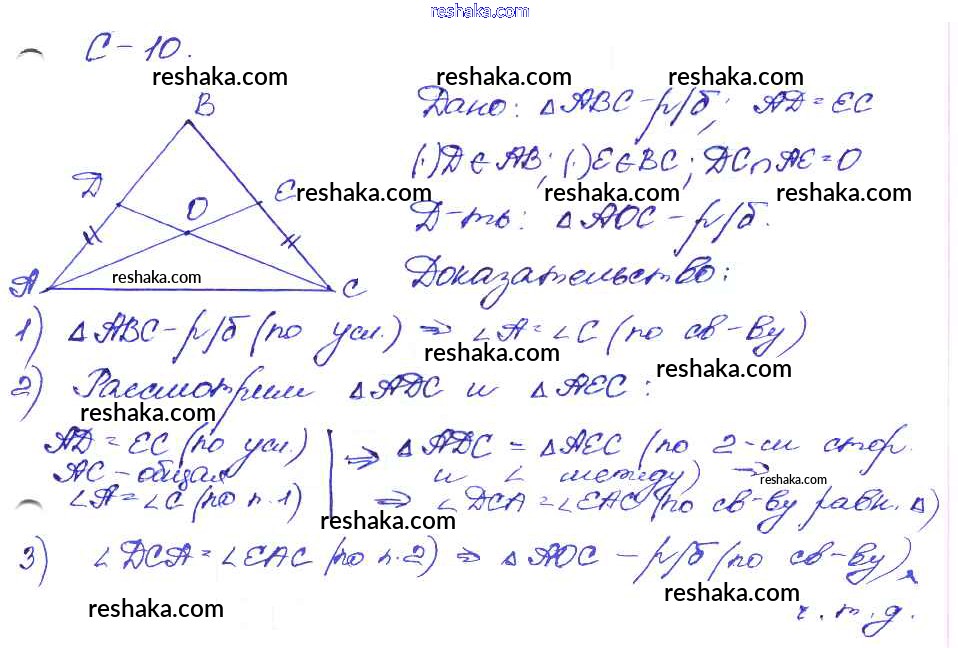 reshaka.com
С-10.
reshaka.com reshaka.com reshaka.com
B
Дано: △ABC-р/б; AD=EC
D E O
(·)D∈AB; (·)E∈BC; DC∩AE=O
reshaka.com reshaka.com reshaka.com
Д-ть: △AOC-р/б.
A C
reshaka.com
Доказательство:
1) △ABC-р/б (по усл.) ⇒ ∠A=∠C (по св-ву)
reshaka.com reshaka.com
2) Рассмотрим △ADC и △AEC:
reshaka.com
AD=EC (по усл.) ⇒ △ADC=△AEC (по 2-м стор.
AC-общая и ∠ между) ⇒
reshaka.com
∠A=∠C (по п.1) ⇒ ∠DCA=∠EAC (по св-ву равн. △)
reshaka.com
3) ∠DCA=∠EAC (по п.2) ⇒ △AOC-р/б (по св-ву),
reshaka.com reshaka.com
ч.т.д.